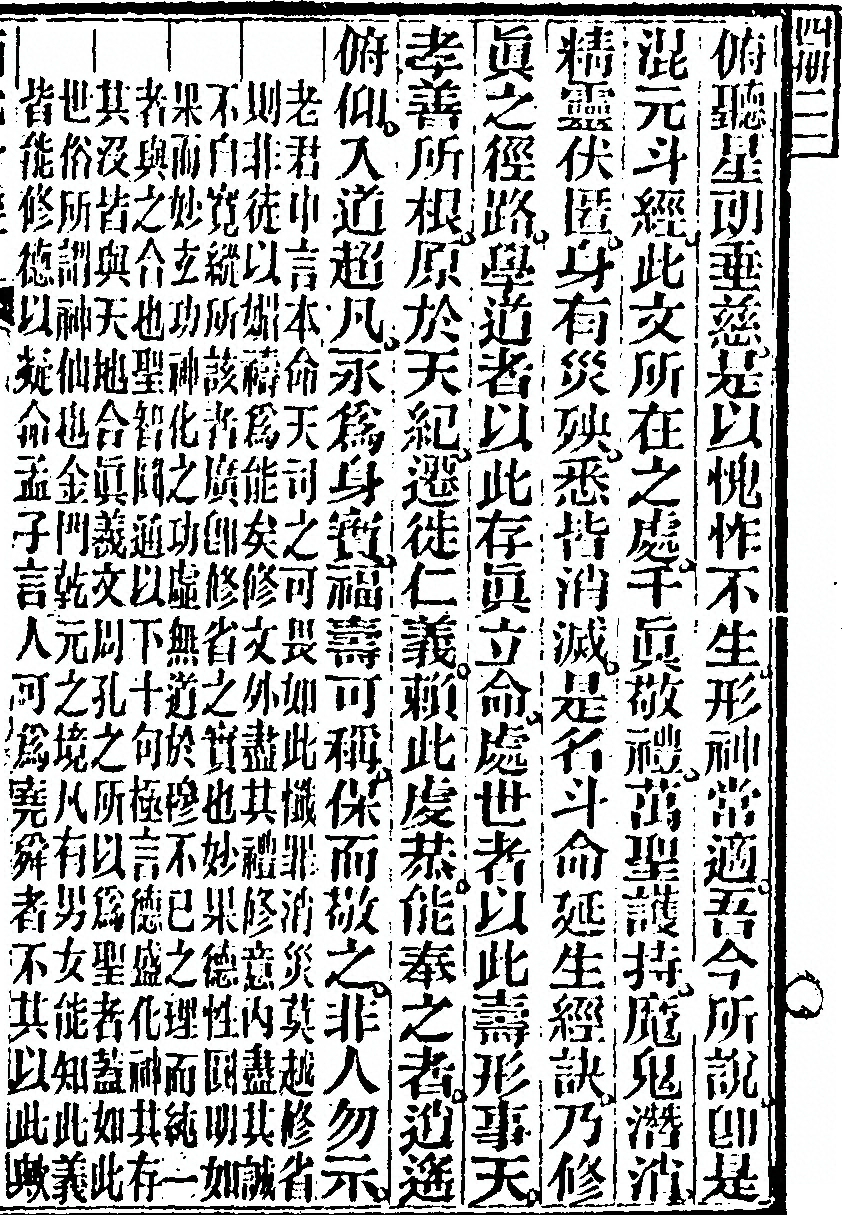 四冊 二二
俯聽星朗垂慈。是以愧怍不生。形神常適。吾今所說。卽是
混元斗經。此文所在之處。千眞敬禮。萬聖護持。魔鬼潛消。
精靈伏匿。身有災殃。悉皆消滅。是名斗命延生經訣。乃修
眞之徑路。學道者以此存眞立命。處世者以此壽形事天。
孝善所根。原於天紀。遷徙仁義。賴此虔恭。能奉之者。逍遙
俯仰。入道超凡。永爲身寶。福壽可稱。保而敬之。非人勿示。
老君申言本命天司之可畏如此懺罪消災莫越修省
則非徒以媚禱爲能矣修文外盡其禮修意內盡其誠
不自寬縱所該者廣卽修省之實也妙果德性圓明如
果而妙玄功神化之功虛無道於穆不已之理而純一
者與之合也聖智圓通以下十句極言德盛化神其存
其沒皆與天地合眞羲文周孔之所以爲聖者蓋如此
世俗所謂神仙也金門乾元之境凡有男女能知此義
皆能修德以凝命孟子言人可爲堯舜者不其以此歟